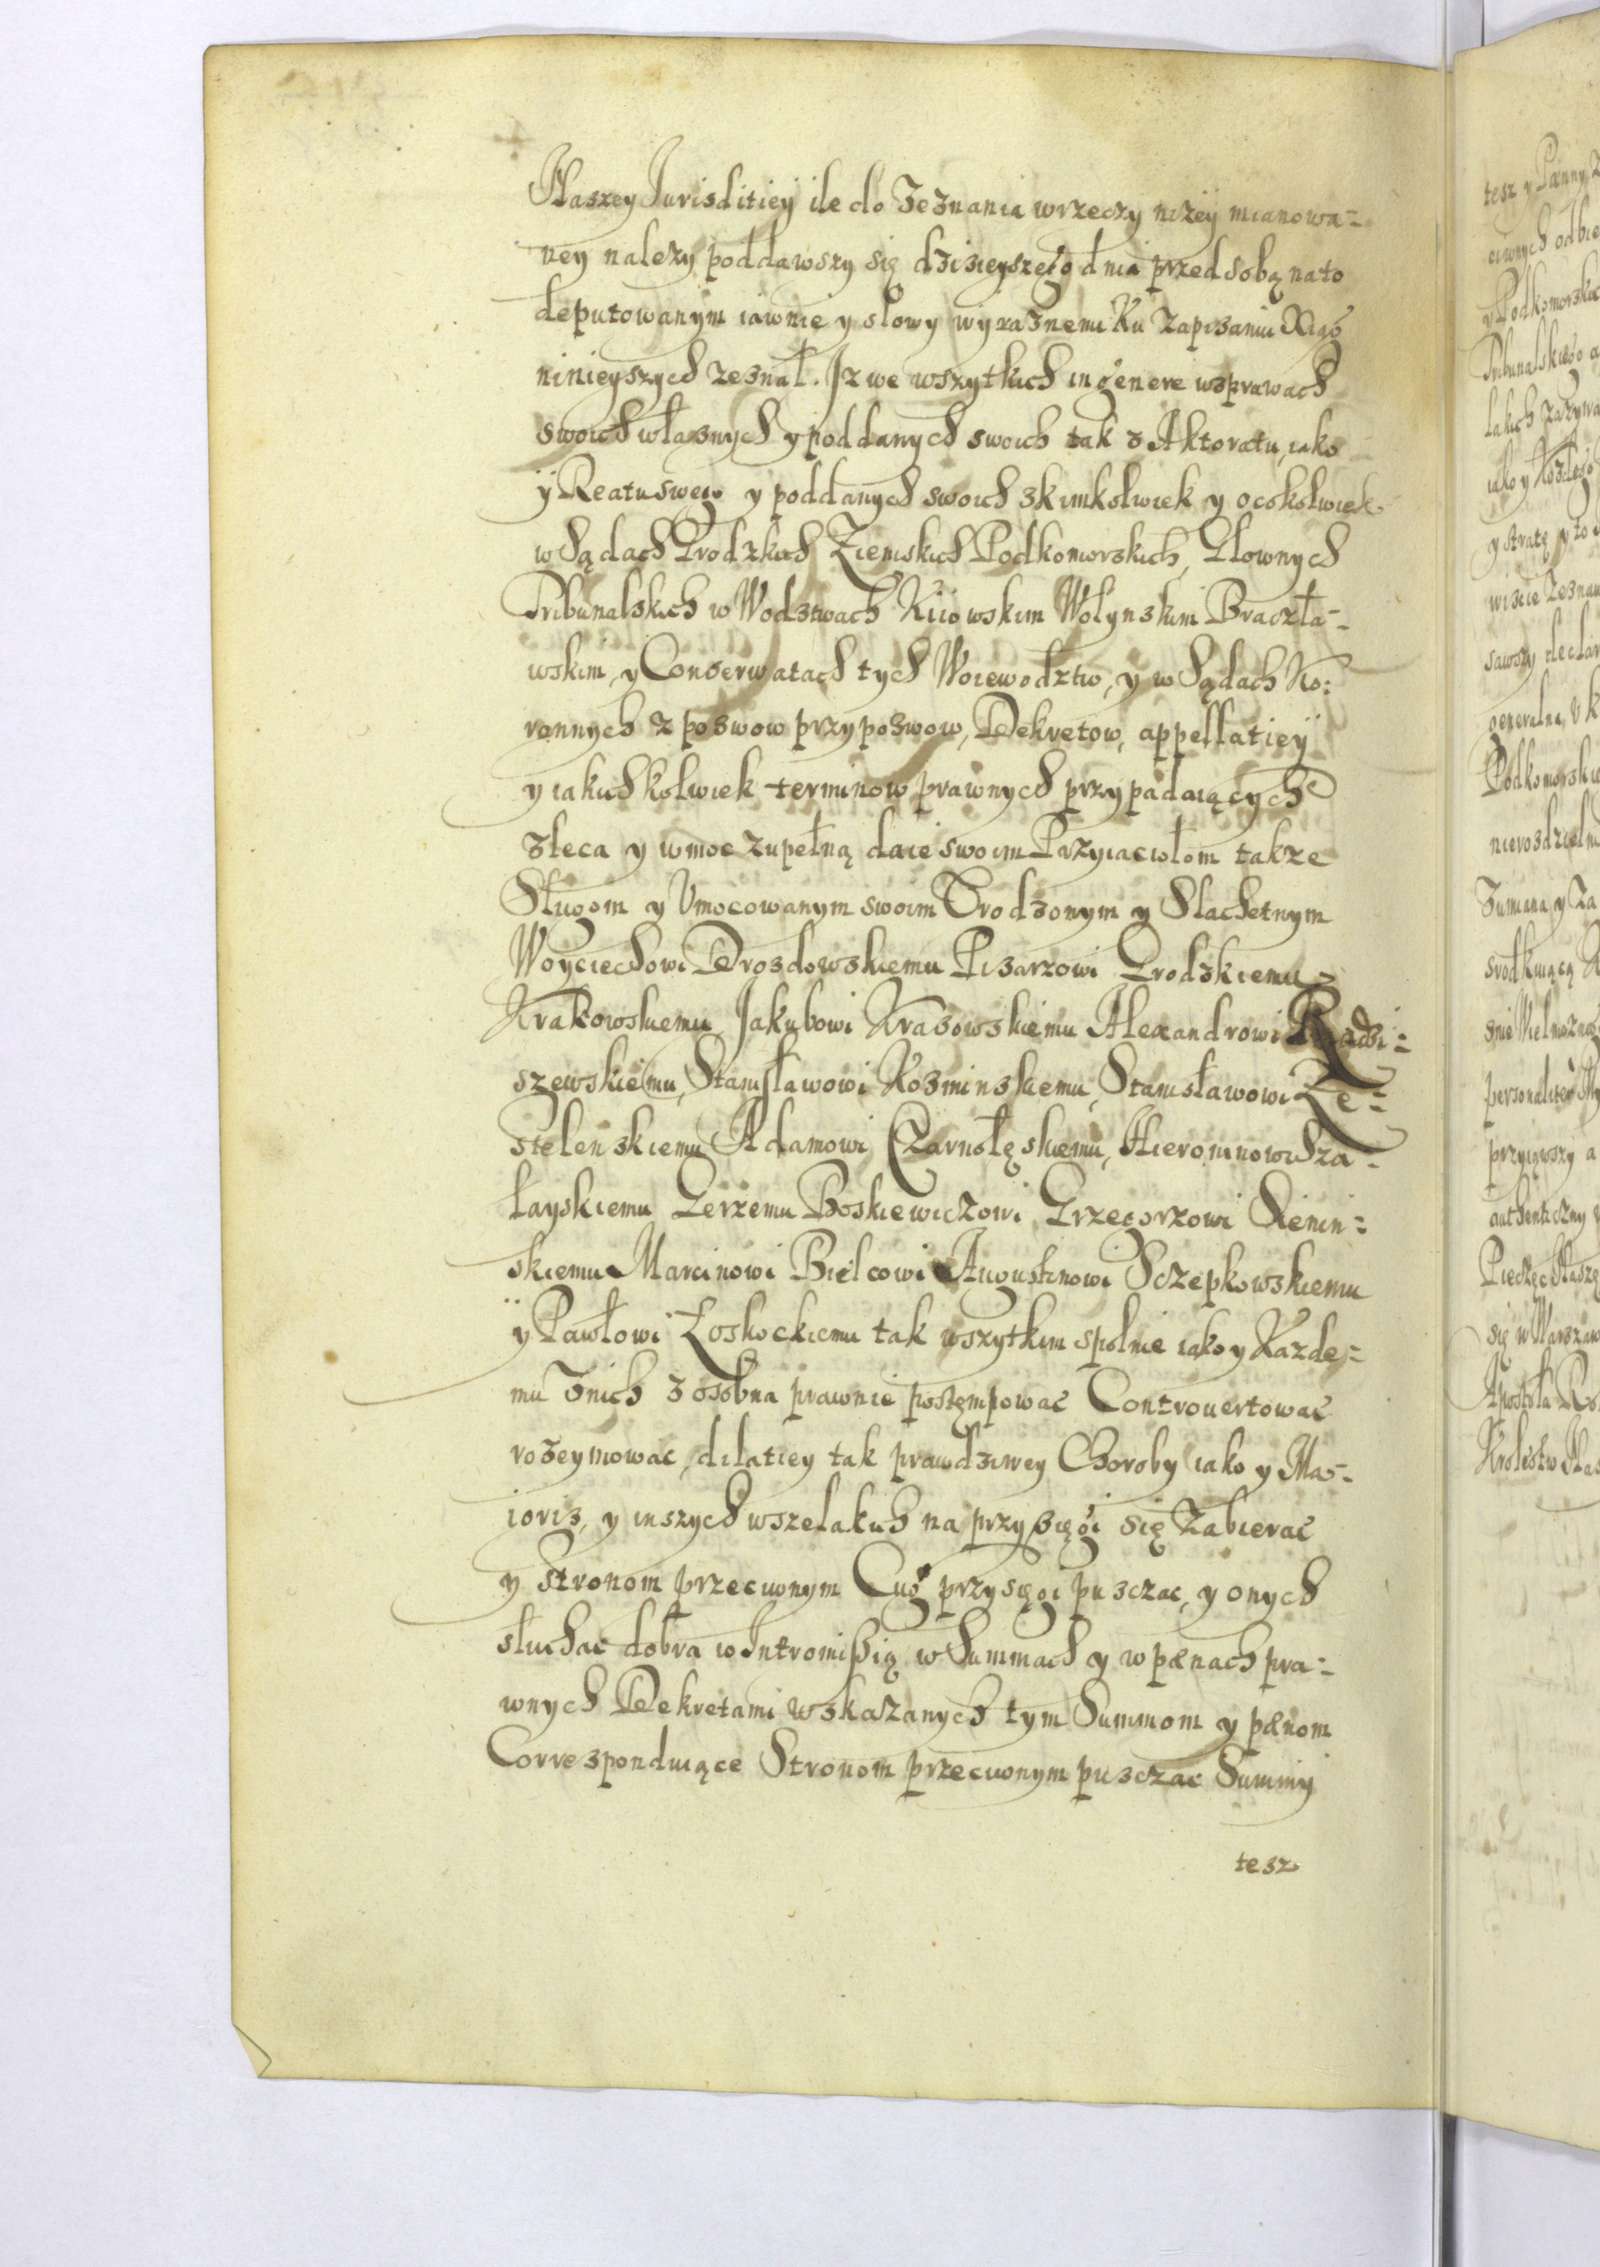 Naszey Jurisditiey ile do Zeznania w rzeczy niżey mianowa=
ney należy poddawszy się dzisieyszego dnia przed sobą na to
deputowanym iawnie y słowy wyraznemi Ku Zapisaniu Xiąg
ninieyszych zeznał. Jz we wszytkich in genere w sprawach
swoich własnych y poddanych swoich tak z Aktoratu, iako
y Reatu swego y poddanych swoich z kimkolwiek y o cokolwiek
w Sądach Grodzkich Ziemskich Podkomorskich, Głownych
Tribunalskich w Wodztwach Kiiowskim Wołynskim Bracztła=
wskim, y Conserwatach tych Woiewodztw, y w Sądach Ko:
ronnych z pozwow przypozwow, Dekretow, appellatiey
y iakichkolwiek terminow prawnych przypadaiących
zleca y w moc zupełną daie swoim Przyiaciołom takze
Sługom y Umocowanym swoim Urodzonym y Slachetnym
Woyciechowi Drozdowskiemu Pisarzowi Grodzkiemu
Krakowskiemu, Jakubowi Krasowskiemu Alexandrowi Radzi=
szewskiemu, Stanisławowi Kozminskiemu, Stanisławowi Ze=
stelenskiemu Adamowi Czarnołęskiemu, Hieronimowi Sza=
łayskiemu Jerzemu Boskiewiczowi Grzegorzowi Sienin=
skiemu Marcinowi Bielcowi Augustinowi Sczepkowskiemu
y Pawłowi Łoskockiemu tak wszytkim spolnie iako y Kazde=
mu z nich z osobna prawnie postęmpowac Controvertowac
rozeymowac, dilatiey tak prawdziwey Choroby iako y Ma=
ioris, y inszych wszelakich na przysięgi się Zabierac
y Stronom przeciwnym Cug przysięgi pusczac, y onych
słuchac dobra w Intromissią w Summach y w pænach pra=
wnych Dekretami wskazanych tym Summom y pænom
Correspnduiące Stronom przeciwnym pusczac Summy
tesz